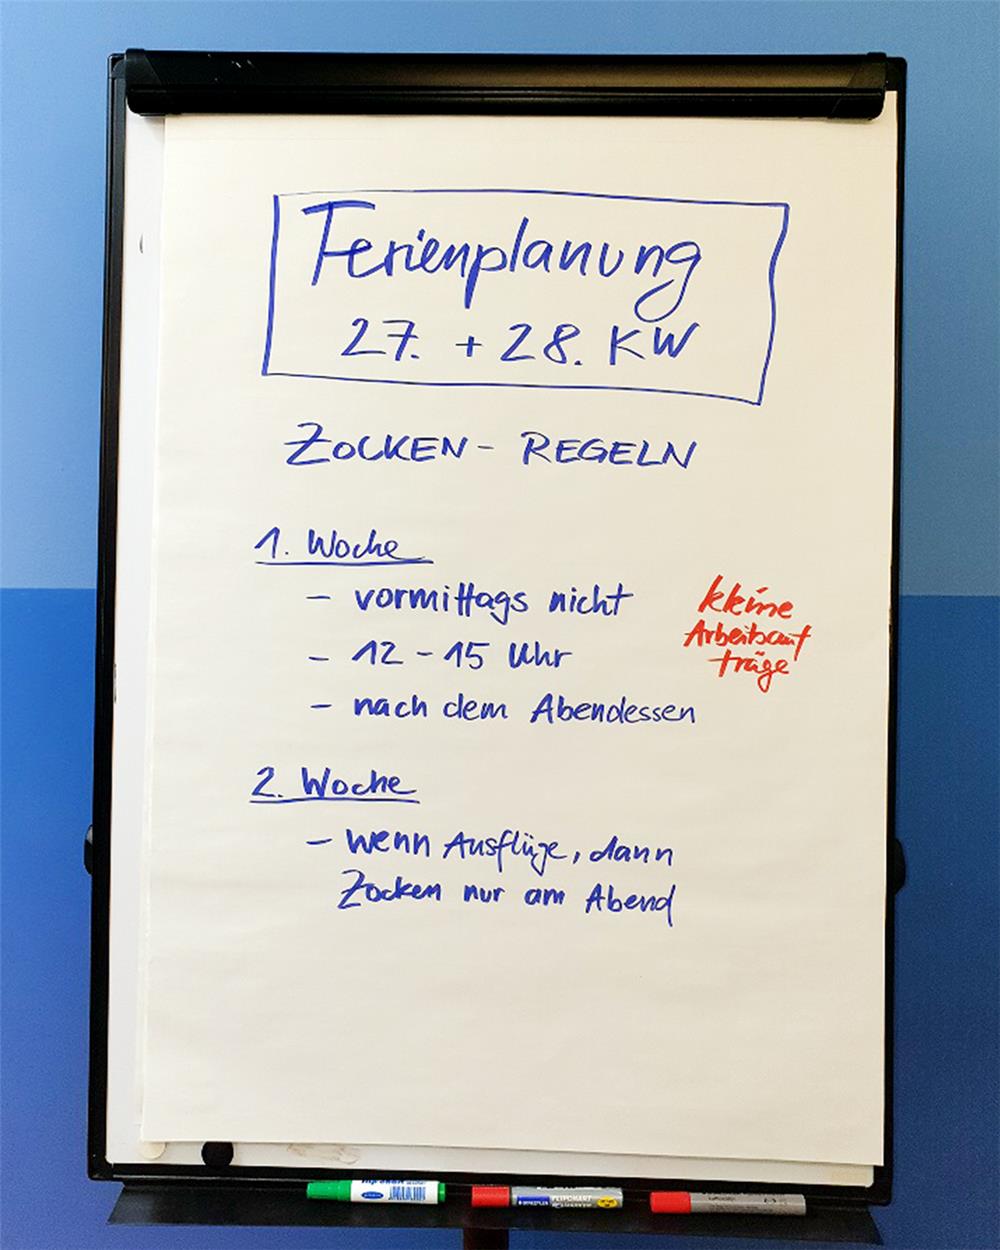 Ferienplanung
27. + 28. KW
ZOCKEN - REGELN
1. Woche
- vormittags nicht
- 12 - 15 Uhr
- nach dem Abendessen
kleine
Arbeitsauf
träge
2. Woche
- wenn Ausflüge, dann
Zocken nur am Abend
FLIPCHART